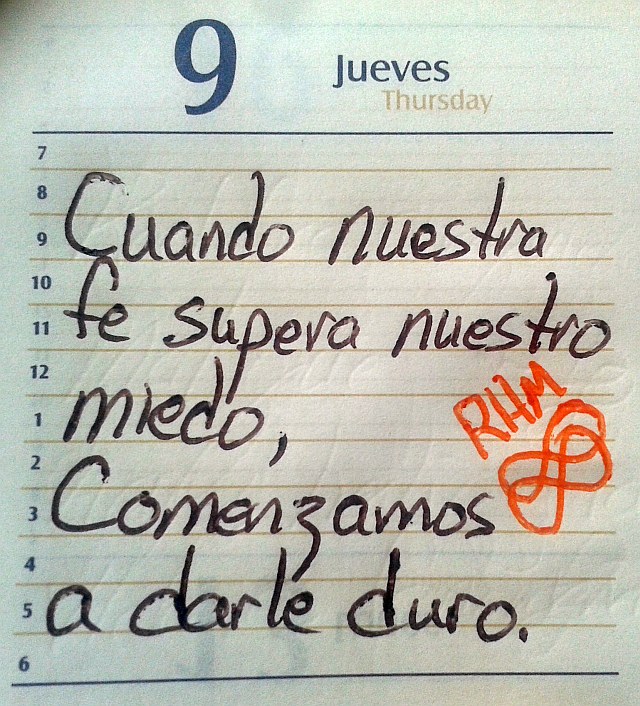 9
Jueves
Thursday
7
8
9
10
11
12
1
2
3
4
5
6
Cuando nuestra
fe supera nuestro
miedo,
Comenzamos
a darle duro.
RHM